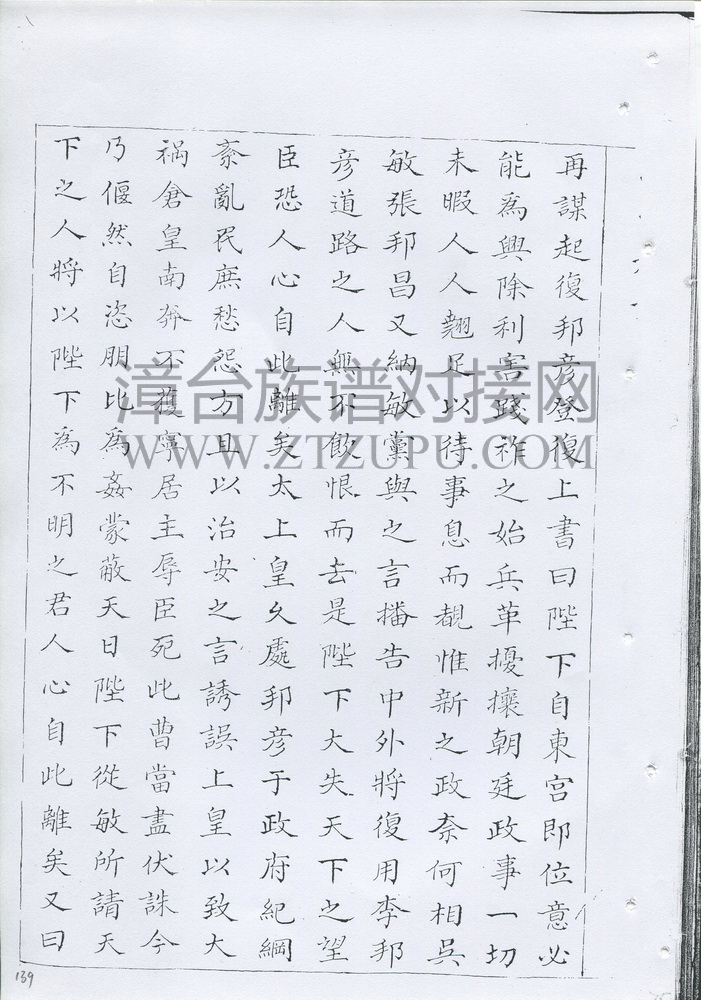 再謀起復邦彦登復上書曰陛下自東宮即位意必
能為興除利害踐祚之始兵革擾攘朝廷政事一切
未暇人人翹足以待事息而覩惟新之政奈何相吳
敏張邦昌又納敏黨與之言播告中外將復用李邦
彦道路之人無不飲恨而去是陛下大失天下之望
臣恐人心自此離矣太上皇久處邦彦于政府紀綱
紊亂民庶愁怨方且以治安之言誘誤上皇以致大
禍倉皇南奔不獲寧居主辱臣死此曹當盡伏誅今
乃偃然自恣朋比為姦蒙蔽天日陛下從敏所請天
下之人將以陛下為不明之君人心自此離矣又曰
139
漳台族谱对接网
WWW.ZTZUPU.COM